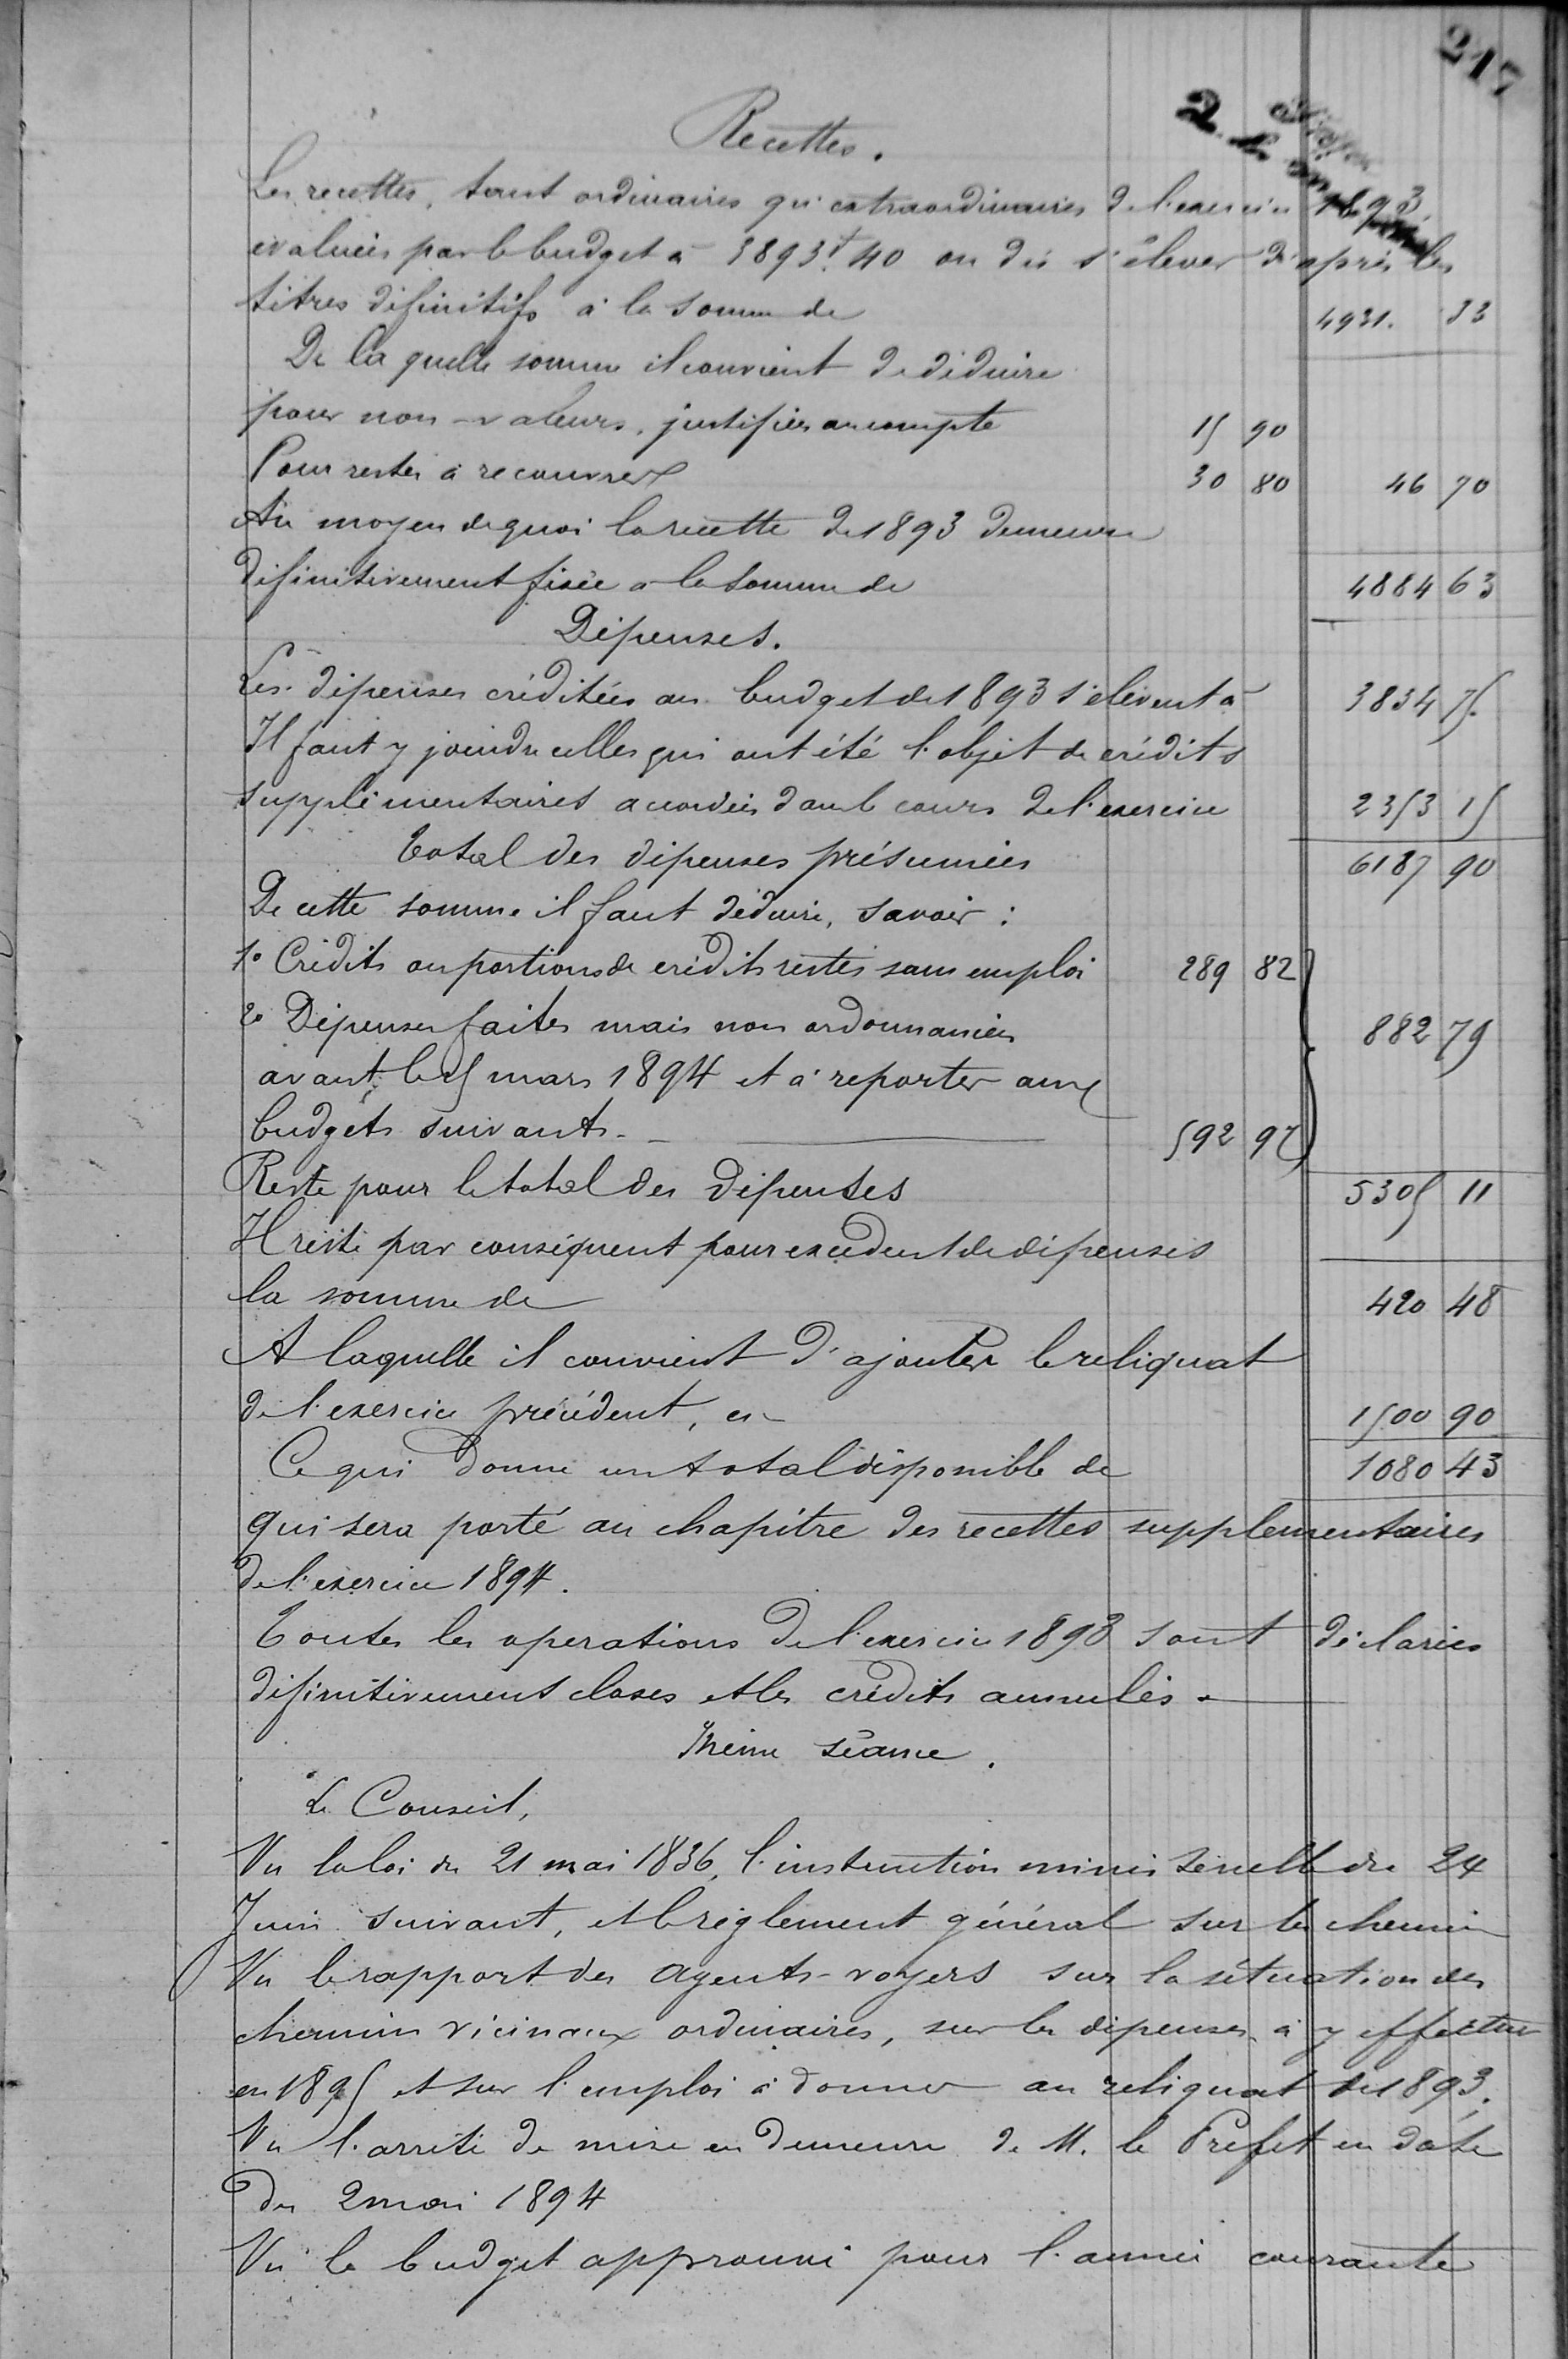 217
Recettes.
Les recettes, tant ordinaires qu'extraordinaires de l'exercice 1893,
évaluées par le budget à 3893f 40 on dû s'élever d'après les
titres définitifs à la somme de 4931. 33
De la quelle somme il convient de déduire
pour non-valeurs, justifiées au compte 15 90
Pour restes à recouvrer 30 80 46 70
Au moyen de quoi la recette de 1893 demeure
définitivement fixée à la somme de 4884 63
Dépenses.
Les dépenses créditées au budget de 1893 s'élèvent à 3834 75.
Il faut y joindre celles qui ont été l'objet de crédits
supplémentaires accordés dans le cours de l'exercice 2353 15
Total des dépenses présumées 6187 90
De cette somme il faut déduire, savoir :
1° Crédits ou portions de crédits restés sans emploi 289 82
2° Dépenses faites mais non ordonnancées 882 79
avant le 15 mars 1894 et à reporter aux
budgets suivants - 592 97
Reste pour le total des dépenses 5305 11
Il reste par conséquent pour excédent de dépenses
la somme de 420 48
A laquelle il convient d'ajouter le reliquat
de l'exercice précédent, ci - 1500 90
Ce qui donne un total disponible de 1080 43
qui sera porté au chapitre des recettes supplémentaires
de l'exercice 1894.
Toutes les opérations de l'exercice 1893 sont déclarées
définitivement closes et les crédits annulés -
Même séance.
Le Conseil,
Vu la loi du 21 mai 1836, l'instruction ministérielle du 24
Juin suivant, et le réglement général sur les chemins
Vu le rapport des agents-voyers sur la situation des
chemins vicinaux ordinaires, sur les dépenses à y effectuer
en 1895 et sur l'emploi à donner au reliquat de 1893.
Vu l'arrêté de mise en demeure de M. le Préfet en date
du 2 mai 1894
Vu le budget approuvé pour l'année courante